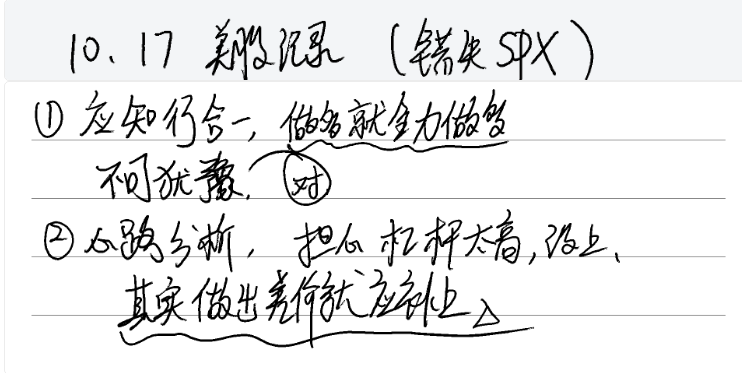 10.17 美股记录 (错失SPX)
① 应知行合一, 做多就全力做多
不可犹豫. 对
② 心路分析, 担心杠杆太高, 没上、
其实做出差价就应该上 △